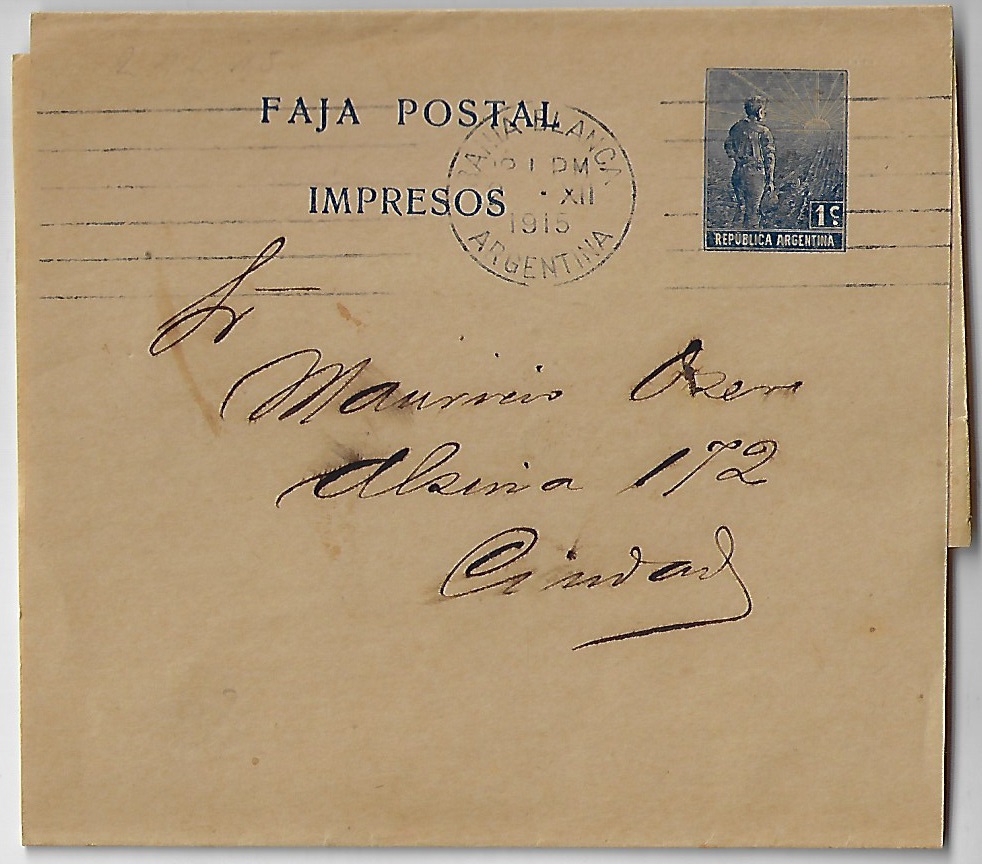 FAJA POSTAL
IMPRESOS
BAHIA BLANCA
PM
XII
1915
ARGENTINA
1c
REPÚBLICA ARGENTINA
Sr
Mauricio
Alsina 172
Ciudad